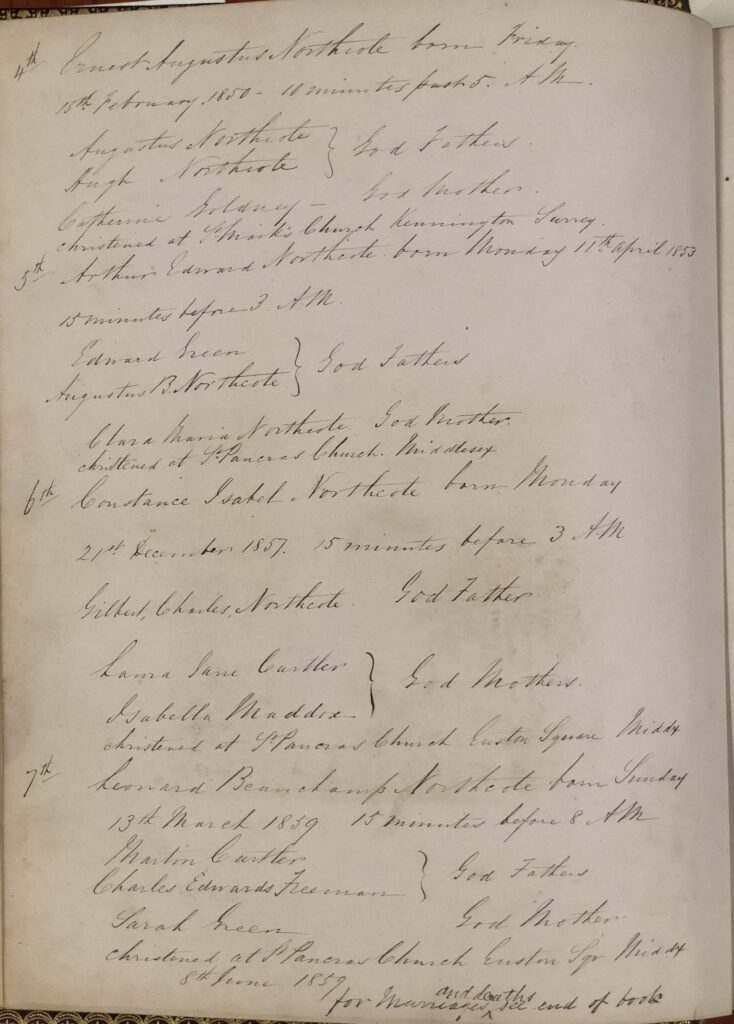 4th Ernest Augustus Northcote born Friday.
15th February 1850 - 10 minutes past 5. A.M.
Augustus Northcote
Hugh Northcote } God Fathers.
Catherine Goldney - God Mother.
christened at St Mark's Church Kennington Surrey.
5th Arthur Edward Northcote born Monday 11th April 1853
15 minutes before 3 A.M.
Edward Green
Augustus B. Northcote } God Fathers
Clara Maria Northcote. God Mother.
christened at St Pancras Church. Middlesex
6th Constance Isabel Northcote born Monday
21st December 1857. 15 minutes before 3 A.M
Gilbert, Charles, Northcote. God Father
Laura Jane Curtler
Isabella Maddox } God Mothers.
christened at St Pancras Church Euston Square Middx
7th Leonard Beauchamp Northcote born Sunday
13th March 1859 15 minutes before 8 A.M
Martin Curtler
Charles Edwards Freeman } God Fathers
Sarah Green God Mother
christened at St Pancras Church Euston Sqr Middx
8th June 1859
for Marriages and deaths see end of book